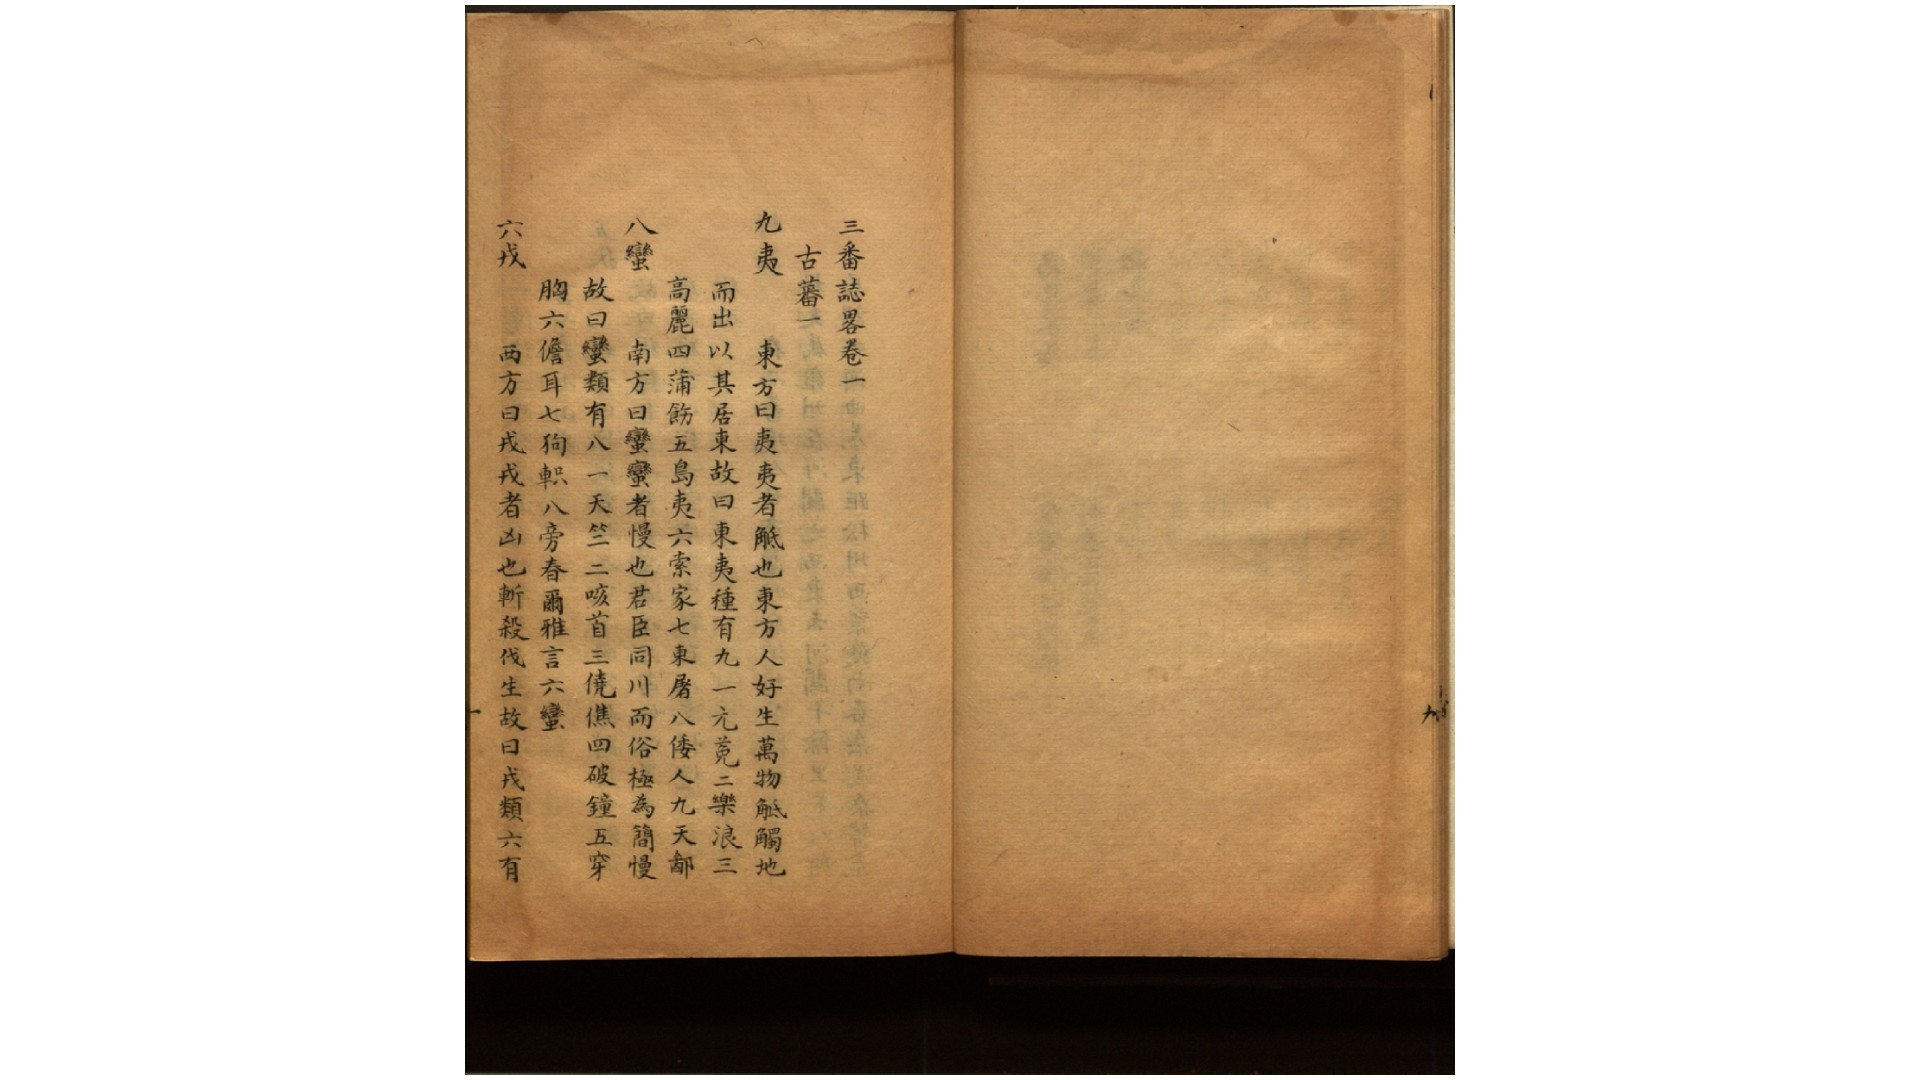 三番誌畧卷一
古蕃一
九夷　東方曰夷夷者觝也東方人好生萬物觝觸地
而出以其居東故曰東夷種有九一元菟二樂浪三
高麗四蒲飭五島夷六索家七東屠八倭人九天鄙
八蠻　南方曰蠻蠻者慢也君臣同川而俗極為簡慢
故曰蠻類有八一天竺二咳首三僥僬四破鐘五穿
胸六儋耳七狗軹八旁春爾雅言六蠻
六戎　西方曰戎戎者凶也斬殺伐生故曰戎類六有